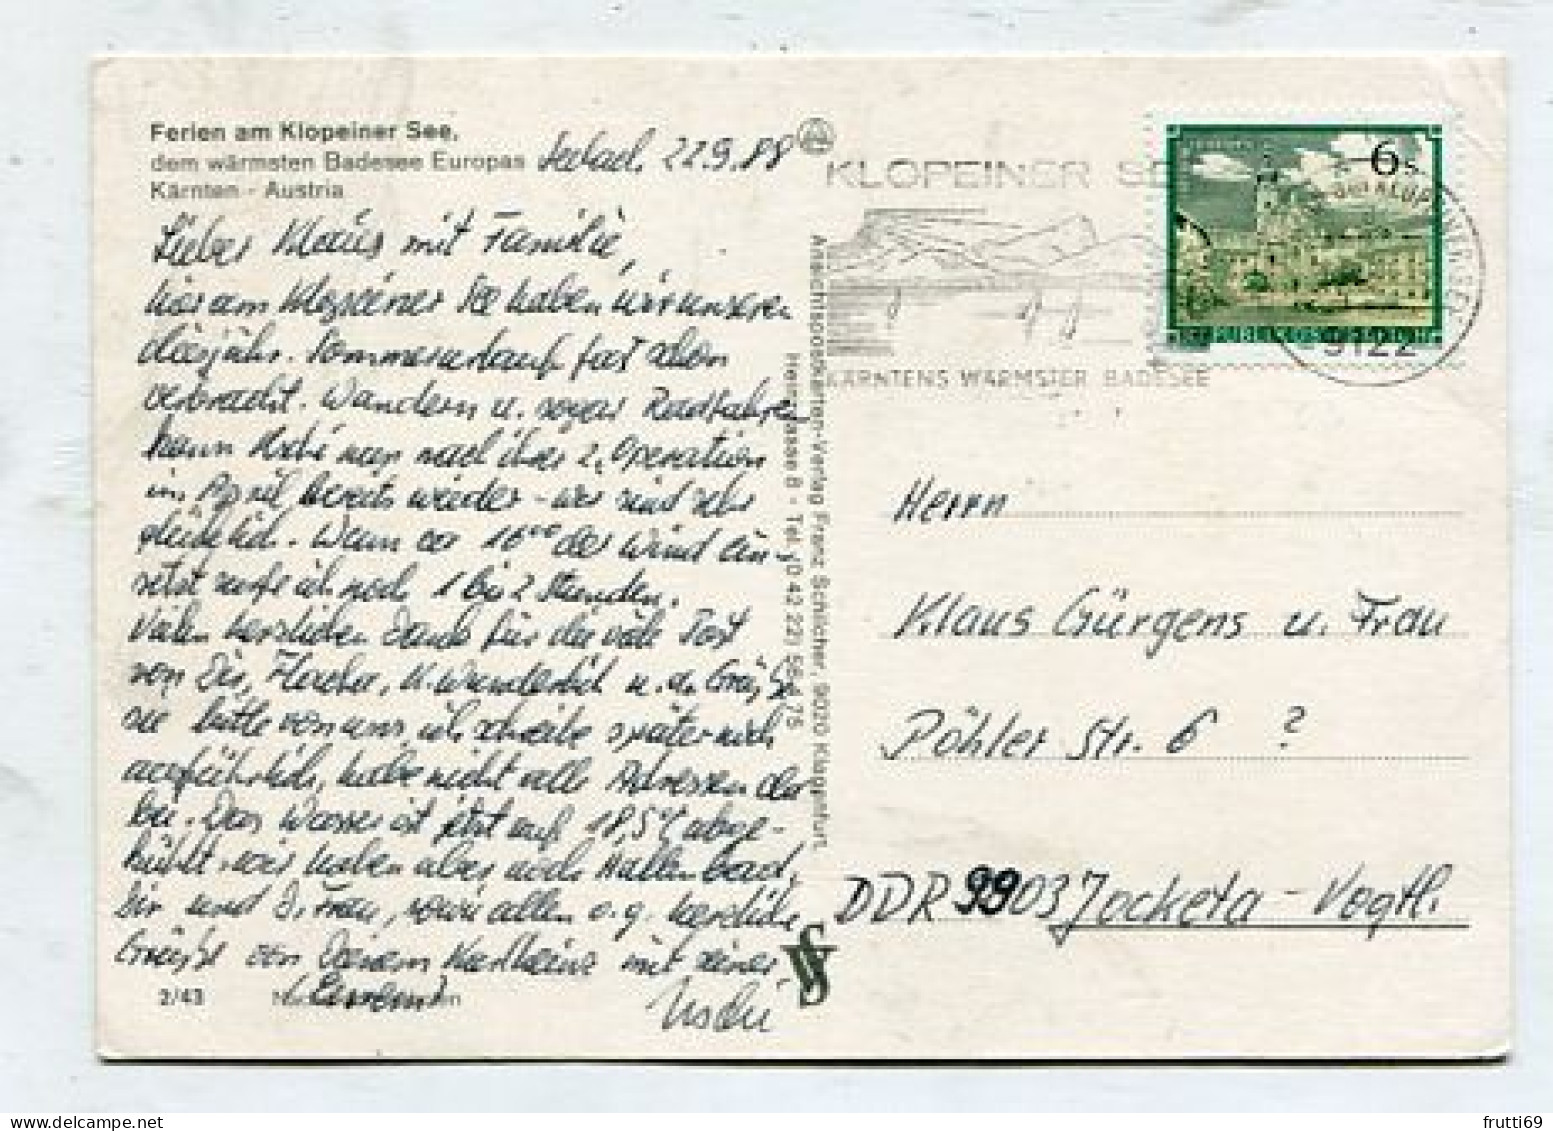 Ferien am Klopeiner See,
dem wärmsten Badesee Europas
Kärnten - Austria
Seebach, 22.9.88
Lieber Klaus mit Familie,
hier am Klopeiner See haben wir unseren
diesjähr. Sommerurlaub fast schon
verbracht. Wandern u. sogar Radfahren
kann Uschi nun nach ihrer 2. Operation
im April bereits wieder - wir sind sehr
glücklich. Wenn so 16°° der Wind ein-
setzt surfe ich noch 1 bis 2 Stunden.
Vielen herzlichen Dank für die viele Post
von Dir, u. Wunderlich u. a. Grüße
sie bitte von uns, ich schreibe später noch
ausführlich, habe nicht alle Adressen da-
bei. Das Wasser ist jetzt auf 18,5°C abge-
kühlt, wir haben aber noch Hallenbad.
Dir und D. Frau, sowie allen o.g. herzliche
Grüße von Deinem Karlheinz mit seiner
Uschi
2/43
Ansichtspostkarten-Verlag Franz Schilcher, 9020 Klagenfurt
8 · Tel. (0 42 22) 56 4 75
KLOPEINER SEE
KÄRNTENS WÄRMSTER BADESEE
6 S
REPUBLIK ÖSTERREICH
9122
Herrn
Klaus Gürgens u. Frau
Pöhler Str. 6 ?
DDR 9903 Jocketa - Vogtl.
VS
frutti69